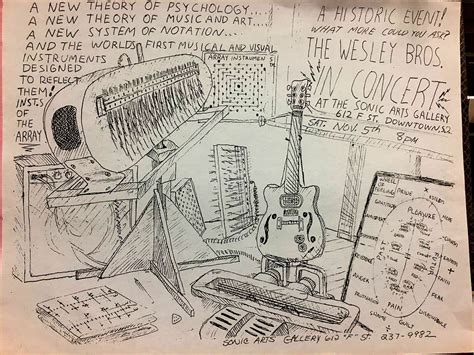 A NEW THEORY OF PSYCHOLOGY...
A NEW THEORY OF MUSIC AND ART...
A NEW SYSTEM OF NOTATION...
AND THE WORLDS FIRST MUSICAL AND VISUAL
INSTRUMENTS
DESIGNED
TO REFLECT
THEM!
INSTS
OF
THE
ARRAY
ARRAY INSTRUMENT
A HISTORIC EVENT!
WHAT MORE COULD YOU ASK?
THE WESLEY BROS.
IN CONCERT
AT THE SONIC ARTS GALLERY
612 F ST. DOWNTOWN, S.D.
SAT. NOV. 5TH 8PM
WHEEL OF
FEELING
PRIDE
PLEASURE
ANGER
PAIN
GUILT
SONIC ARTS GALLERY 612 "F" ST. 237-9982